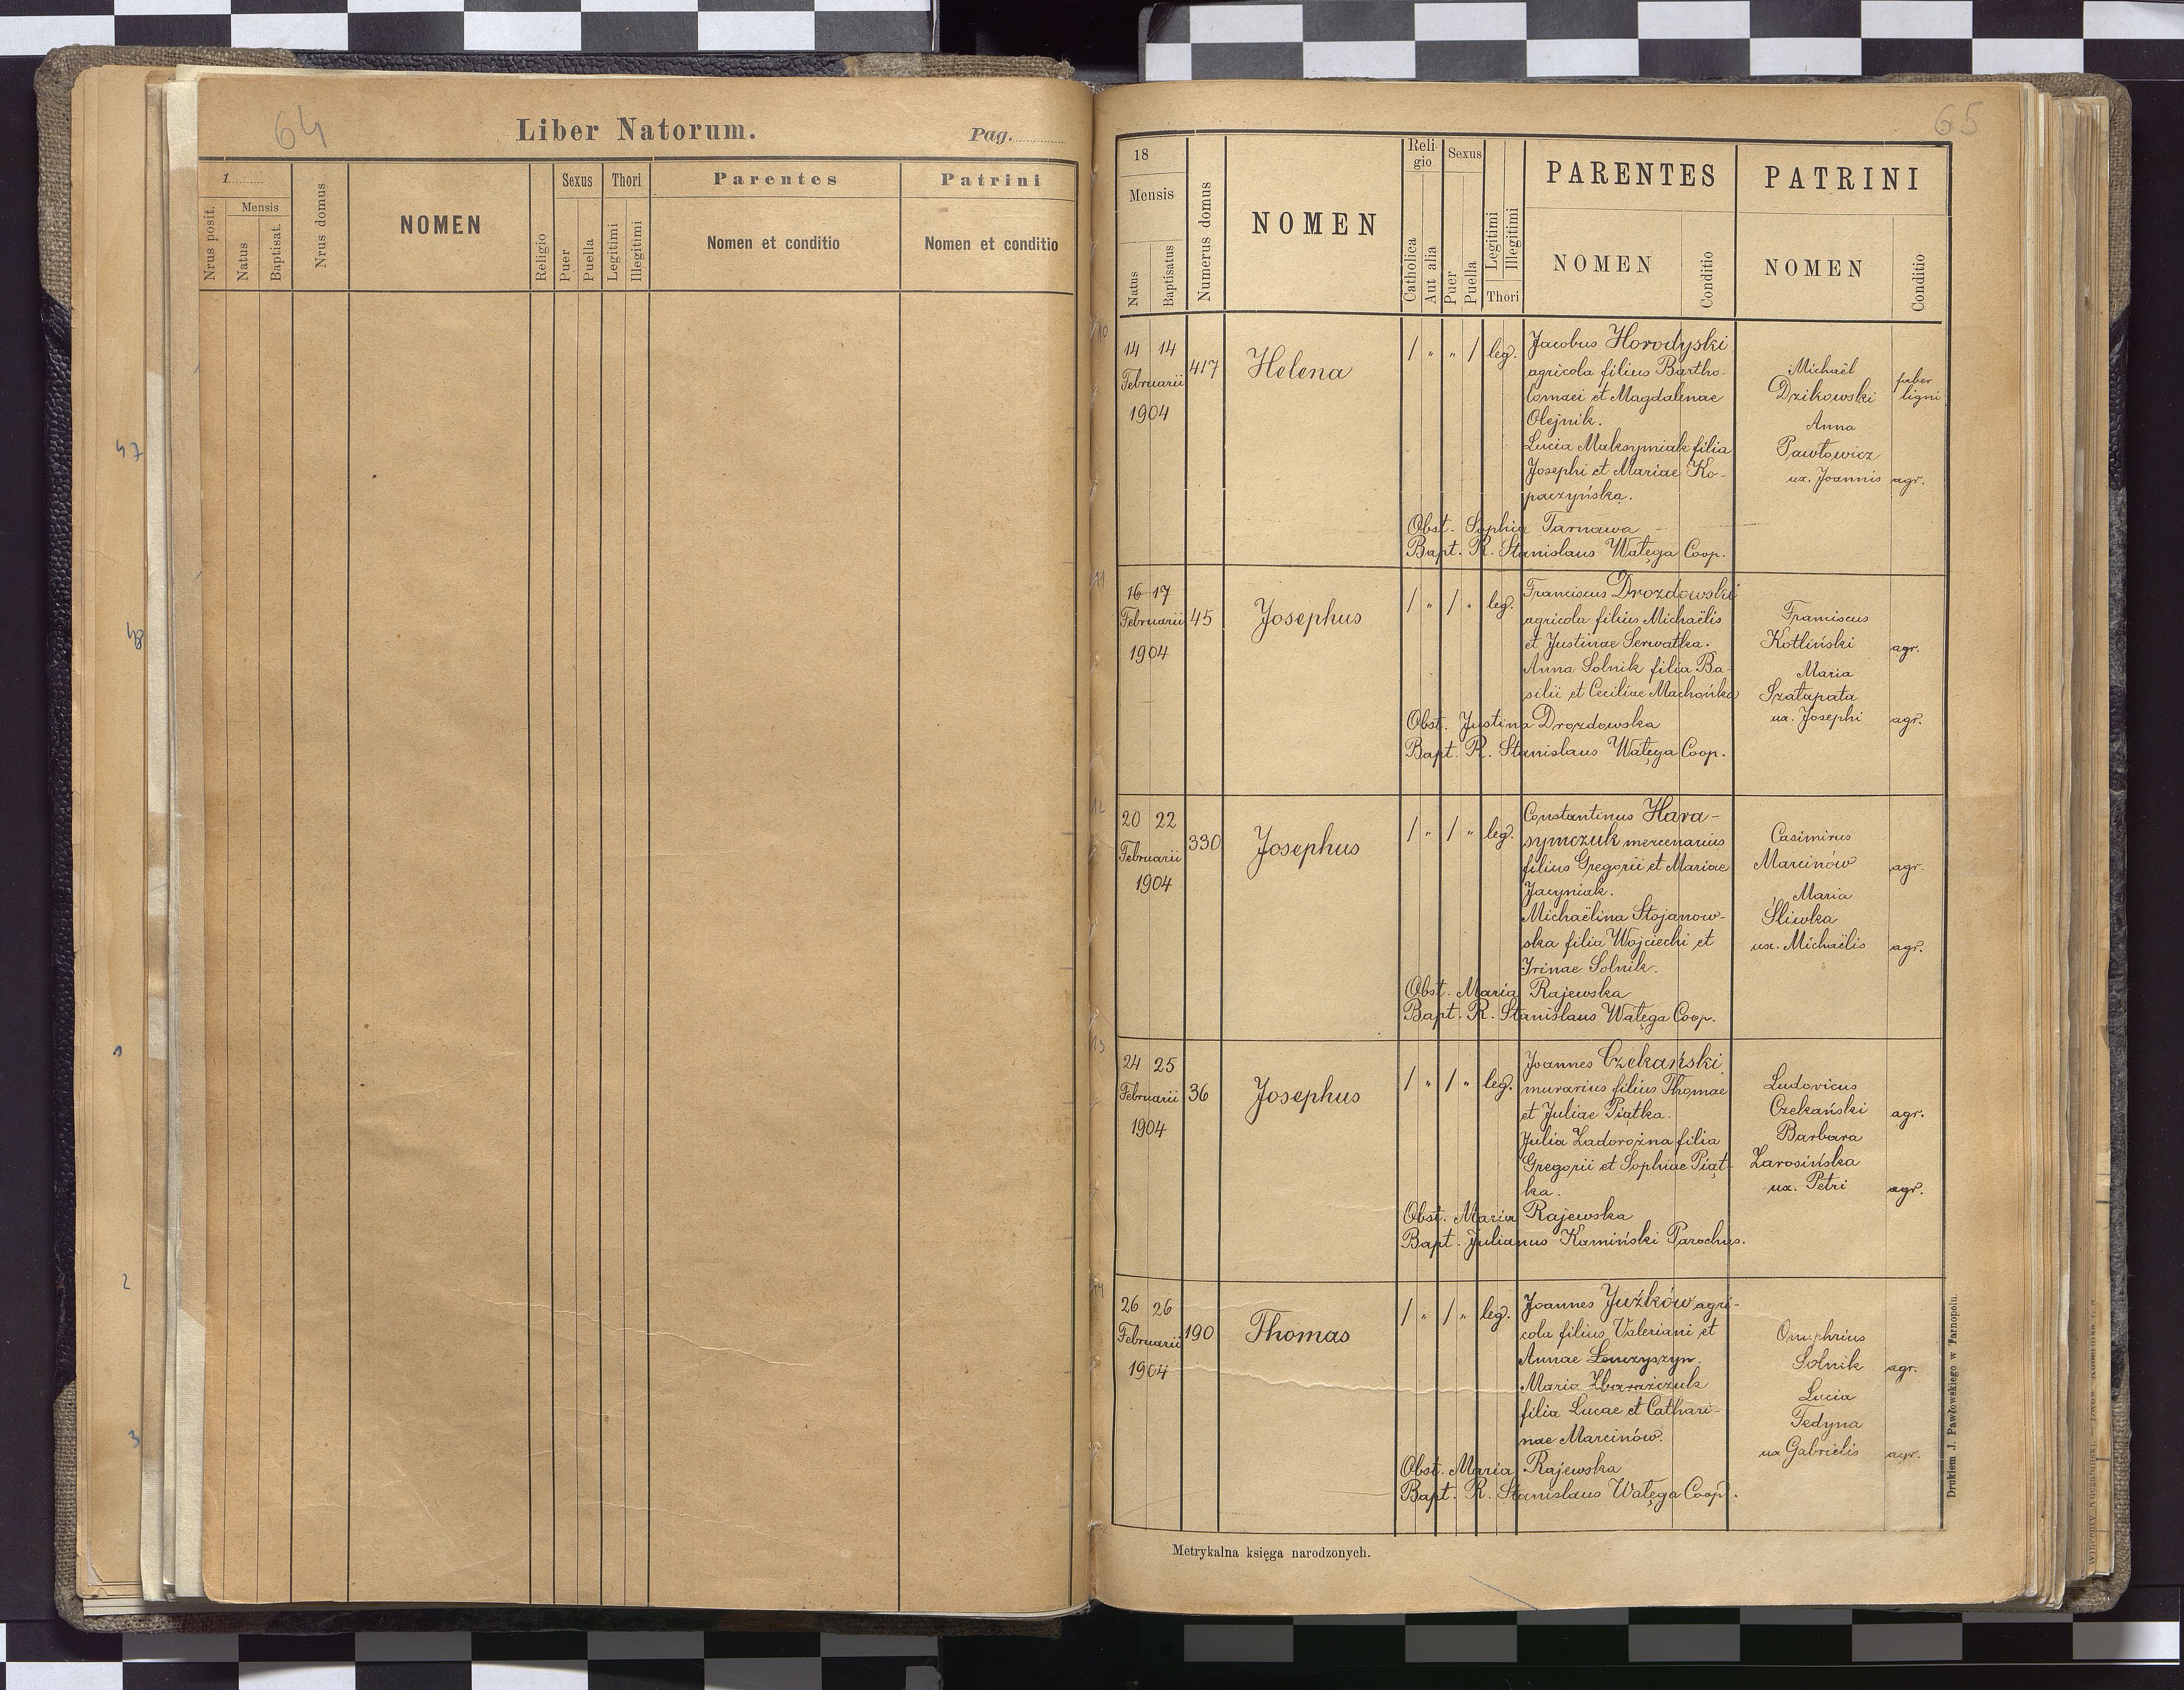 64
Liber Natorum.
Pag.
1
Nrus posit.
Mensis
Natus
Baptisat.
Nrus domus
NOMEN
Religio
Sexus
Puer
Puella
Thori
Legitimi
Illegitimi
Parentes
Nomen et conditio
Patrini
Nomen et conditio
47
48
2
3
65
18
Mensis
Natus
Baptisatus
Numerus domus
NOMEN
Reli
gio
Catholica
Aut alia
Sexus
Puer
Puella
Legitimi
Illegitimi
Thori
PARENTES
NOMEN
Conditio
PATRINI
NOMEN
Conditio
14 14
Februarii
1904
417
Helena
/ " " / leg.
Jacobus Horodyski
agricola filius Bartho-
lomaei et Magdalenae
Olejnik.
Lucia Maksymiak filia
Josephi et Mariae Ko-
paczyńska.
Obst. Sophia Tarnawa
Bapt. R. Stanislaus Watęga Coop.
Michaël
Dzikowski faber
ligni
Anna
Pawłowicz
ux. Joannis agr.
16 17
Februarii
1904
45
Josephus
/ " / " leg.
Franciscus Drozdowski
agricola filius Michaëlis
et Justinae Serwatka.
Anna Solnik filia Ba-
silii et Ceciliae Machońka
Obst. Justina Drozdowska
Bapt. R. Stanislaus Watęga Coop.
Franciscus
Kotliński agr.
Maria
Szałapata
ux. Josephi agr.
12
20 22
Februarii
1904
330
Josephus
/ " / " leg.
Constantinus Hara-
symczuk mercenarius
filius Gregorii et Mariae
Jacyniak.
Michaëlina Stojanow-
ska filia Wojciechi et
Irinae Solnik.
Obst. Maria Rajewska
Bapt. R. Stanislaus Watęga Coop.
Casimirus
Marcinów agr.
Maria
Śliwka
ux. Michaëlis agr.
13
24 25
Februarii
1904
36
Josephus
/ " / " leg.
Joannes Czekański
murarius filius Thomae
et Juliae Piątka.
Julia Zadorożna filia
Gregorii et Sophiae Piąt-
ka.
Obst. Maria Rajewska
Bapt. Julianus Kamiński Parochus.
Ludovicus
Czekański agr.
Barbara
Zarosińska
ux. Petri agr.
26 26
Februarii
1904
190
Thomas
/ " / " leg.
Joannes Juźków agri-
cola filius Valeriani et
Annae Lenczyszyn.
Maria Zbarażczuk
filia Lucae et Cathari-
nae Marcinów.
Obst. Maria Rajewska
Bapt. R. Stanislaus Watęga Coop.
Onuphrius
Solnik agr.
Lucia
Fedyna
ux Gabrielis agr.
Metrykalna księga narodzonych.
Drukiem J. Pawłowskiego w Tarnopolu.